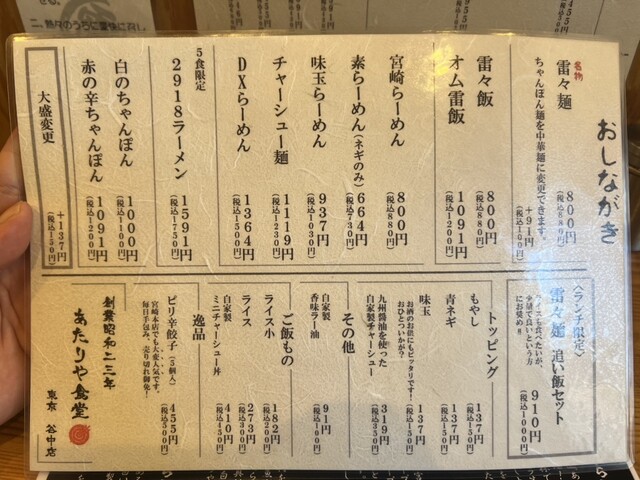 おしながき
名物
雷々麺
800円
(税込880円)
ちゃんぽん麺を中華麺に変更できます。
+91円
(税込100円)
雷々飯
800円
(税込880円)
オム雷飯
1091円
(税込1200円)
宮崎らーめん
800円
(税込880円)
素らーめん(ネギのみ)
664円
(税込730円)
味玉らーめん
937円
(税込1030円)
チャーシュー麺
1119円
(税込1230円)
DXらーめん
1364円
(税込1500円)
5食限定
2918ラーメン
1591円
(税込1750円)
白のちゃんぽん
1000円
(税込1100円)
赤の辛ちゃんぽん
1091円
(税込1200円)
大盛変更
+137円
(税込150円)
〈ランチ限定〉
雷々麺 追い飯セット
910円
(税込1000円)
ライスも食べたいが、
少量で良いという方
にお奨め!!
トッピング
もやし
137円
(税込150円)
青ネギ
137円
(税込150円)
味玉
137円
(税込150円)
お酒のお供にもピッタリです!
おひとついかが?
九州醤油を使った
自家製チャーシュー
319円
(税込350円)
その他
自家製
香味ラー油
91円
(税込100円)
ご飯もの
ライス小
182円
(税込200円)
ライス
273円
(税込300円)
自家製
ミニチャーシュー丼
410円
(税込450円)
逸品
ピリ辛餃子(5個入)
455円
(税込500円)
宮崎本店でも大変人気です。
毎日手包み、売り切れ御免!
創業昭和二三年
あたりや食堂
東京 谷中店